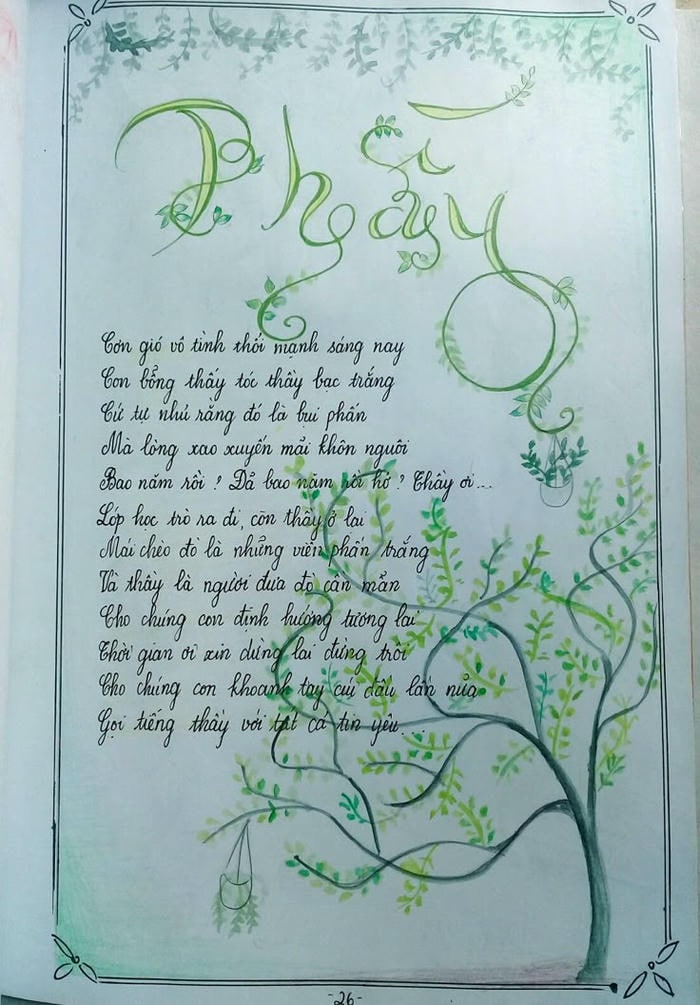 Thầy
Cơn gió vô tình thổi mạnh sáng nay
Con bỗng thấy tóc thầy bạc trắng
Cứ tự nhủ rằng đó là bụi phấn
Mà lòng xao xuyến mãi khôn nguôi
Bao năm rồi ? Đã bao năm rồi hở ? Thầy ơi...
Lớp học trò ra đi, còn thầy ở lại
Mái chèo đò là những viên phấn trắng
Và thầy là người đưa đò cần mẫn
Cho chúng con định hướng tương lai
Thời gian ơi xin dừng lại đừng trôi
Cho chúng con khoanh tay cúi đầu lần nữa
Gọi tiếng thầy với tất cả tin yêu...
-26-